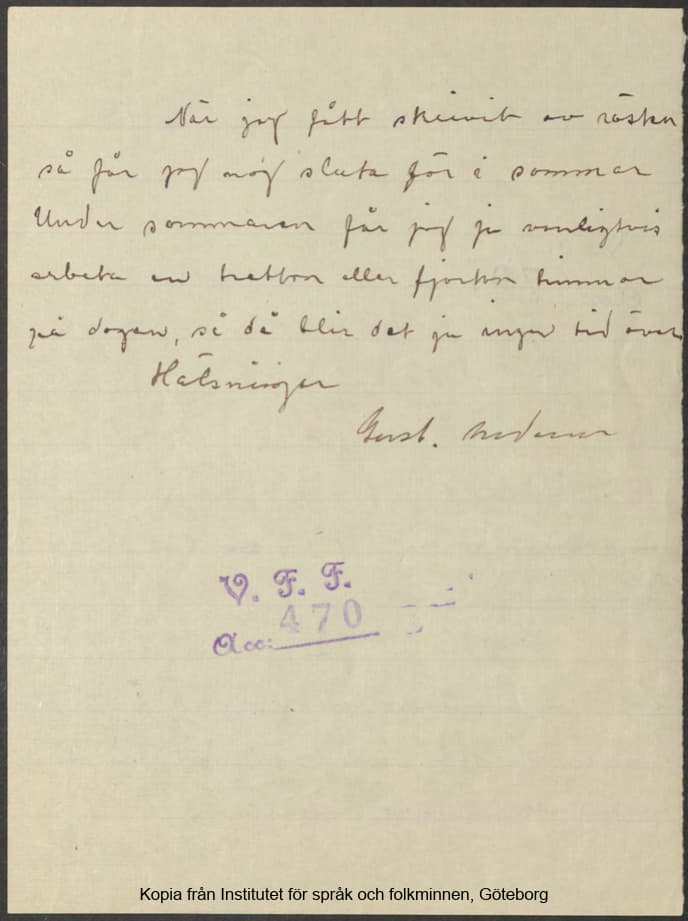 När jag fått skrivit av resten
så får jag nog sluta för i sommar
Under sommaren får jag ju vanligtvis
arbeta en tretton eller fjorton timmar
på dagen, så då blir det ju ingen tid över.
Hälsningar
Gust.
V. F. F.
Acc: 470
Kopia från Institutet för språk och folkminnen, Göteborg